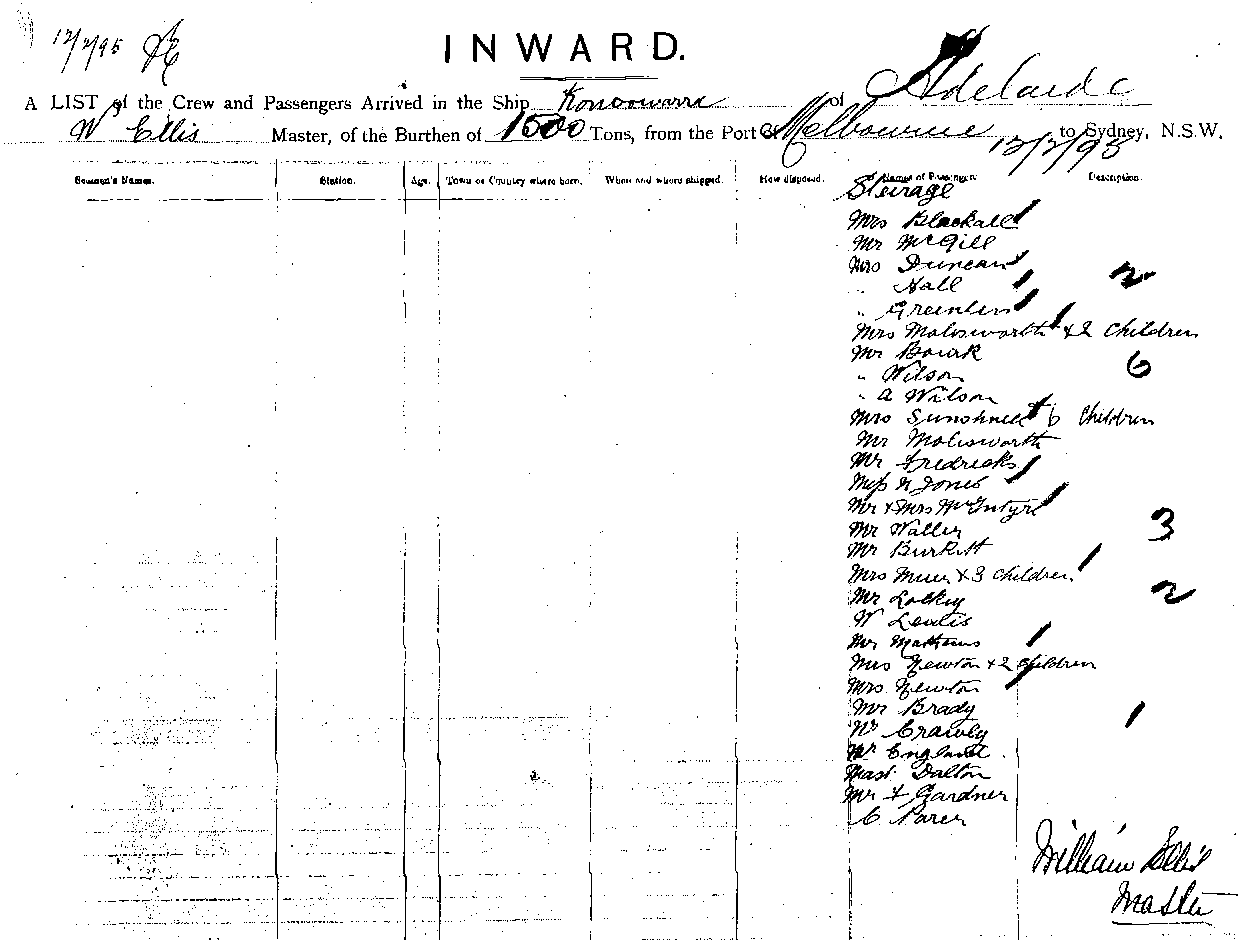 12/2/95
INWARD.
A LIST of the Crew and Passengers Arrived in the Ship Konoowarra of Adelaide
W Ellis Master, of the Burthen of 1500 Tons, from the Port of Melbourne to Sydney, N.S.W.
12/2/95
Seaman's Names. Station. Age. Town or Country where born. When and where shipped. How disposed. Names of Passengers Description.
Steerage
Mrs Blackall
Mr McGill
Mrs Duncan
" Hall 2
" Greenlees
Mrs Molesworth & 2 Children
Mr Bourk 6
" Wilson
" A Wilson
Mrs 6 Children
Mr Molesworth
Mr Fredricks
Miss N Jones
Mr & Mrs McIntyre
Mr Waller 3
Mr Burkitt
Mrs & 3 children
Mr Lockey 2
W
Mr Mathews
Mrs Newton & 2 Children
Mrs Newton
Mr Brady 1
Mr Crawley
Mr England
Mast. Dalton
Mr F Gardner
C Parer
William Ellis
Master